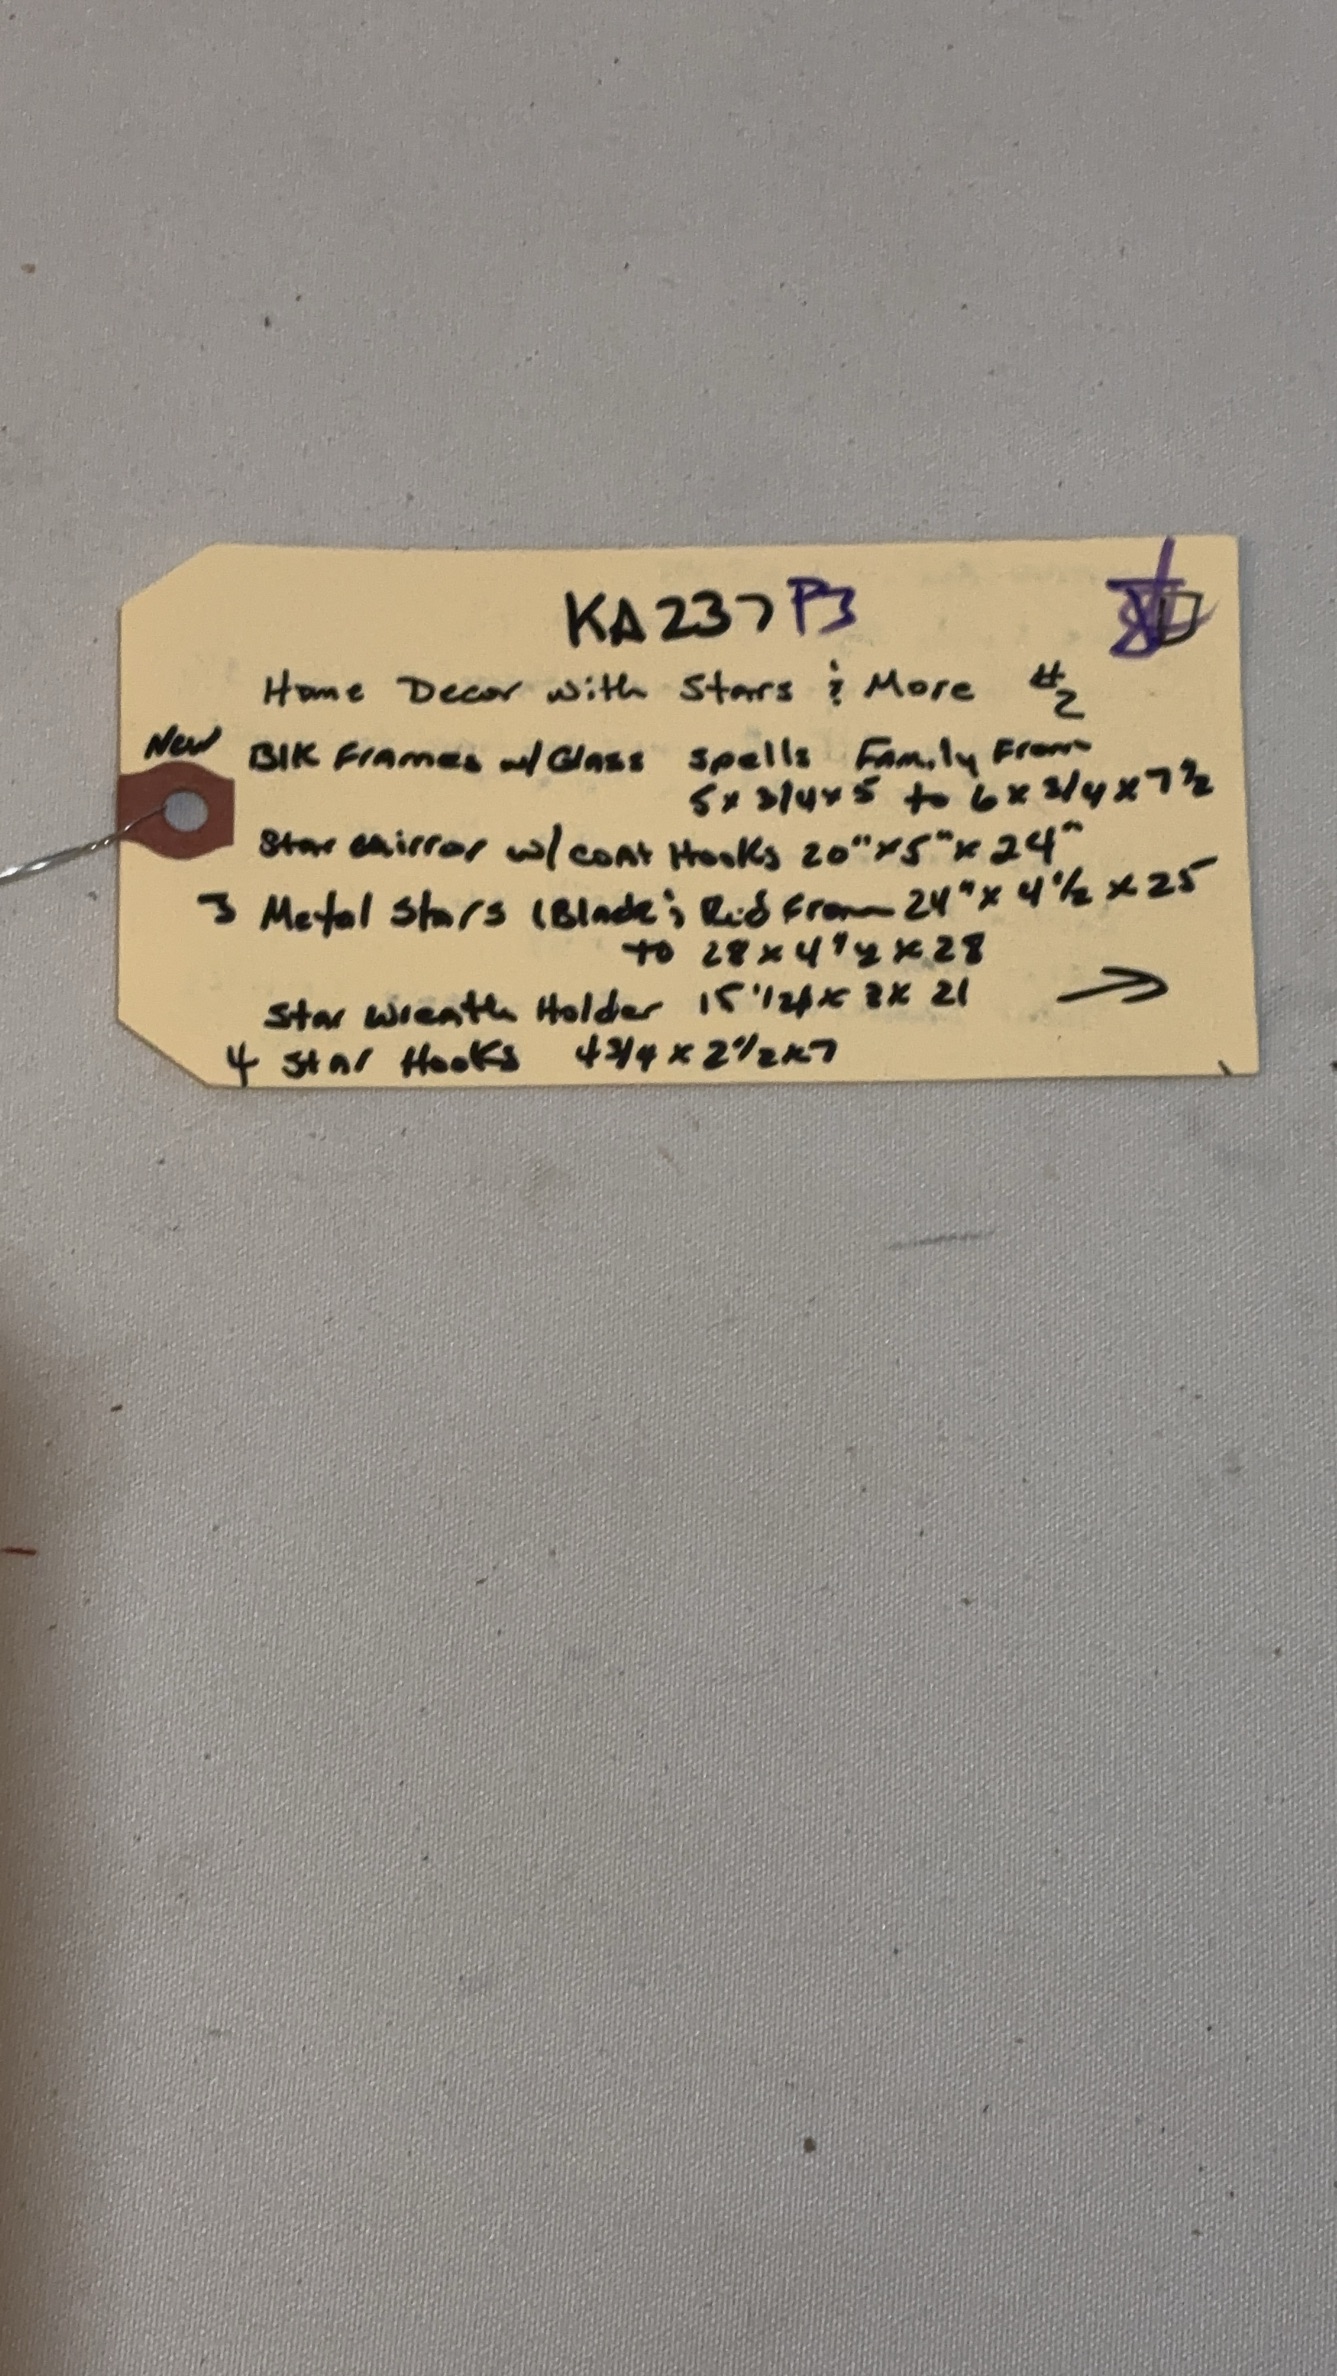 KA237 P3
Home Decor with Stars & More #2
New Blk Frames w/Glass spells Family From
5 x 3/4 x 5 to 6 x 3/4 x 7 1/2
Star mirror w/ coat Hooks 20" x 5" x 24"
3 Metal Stars (Black & Red From 24" x 4 1/2 x 25
to 28 x 4 1/2 x 28
Star Wreath Holder 15 1/2 x x 21
4 Star Hooks 4 3/4 x 2 1/2 x 7